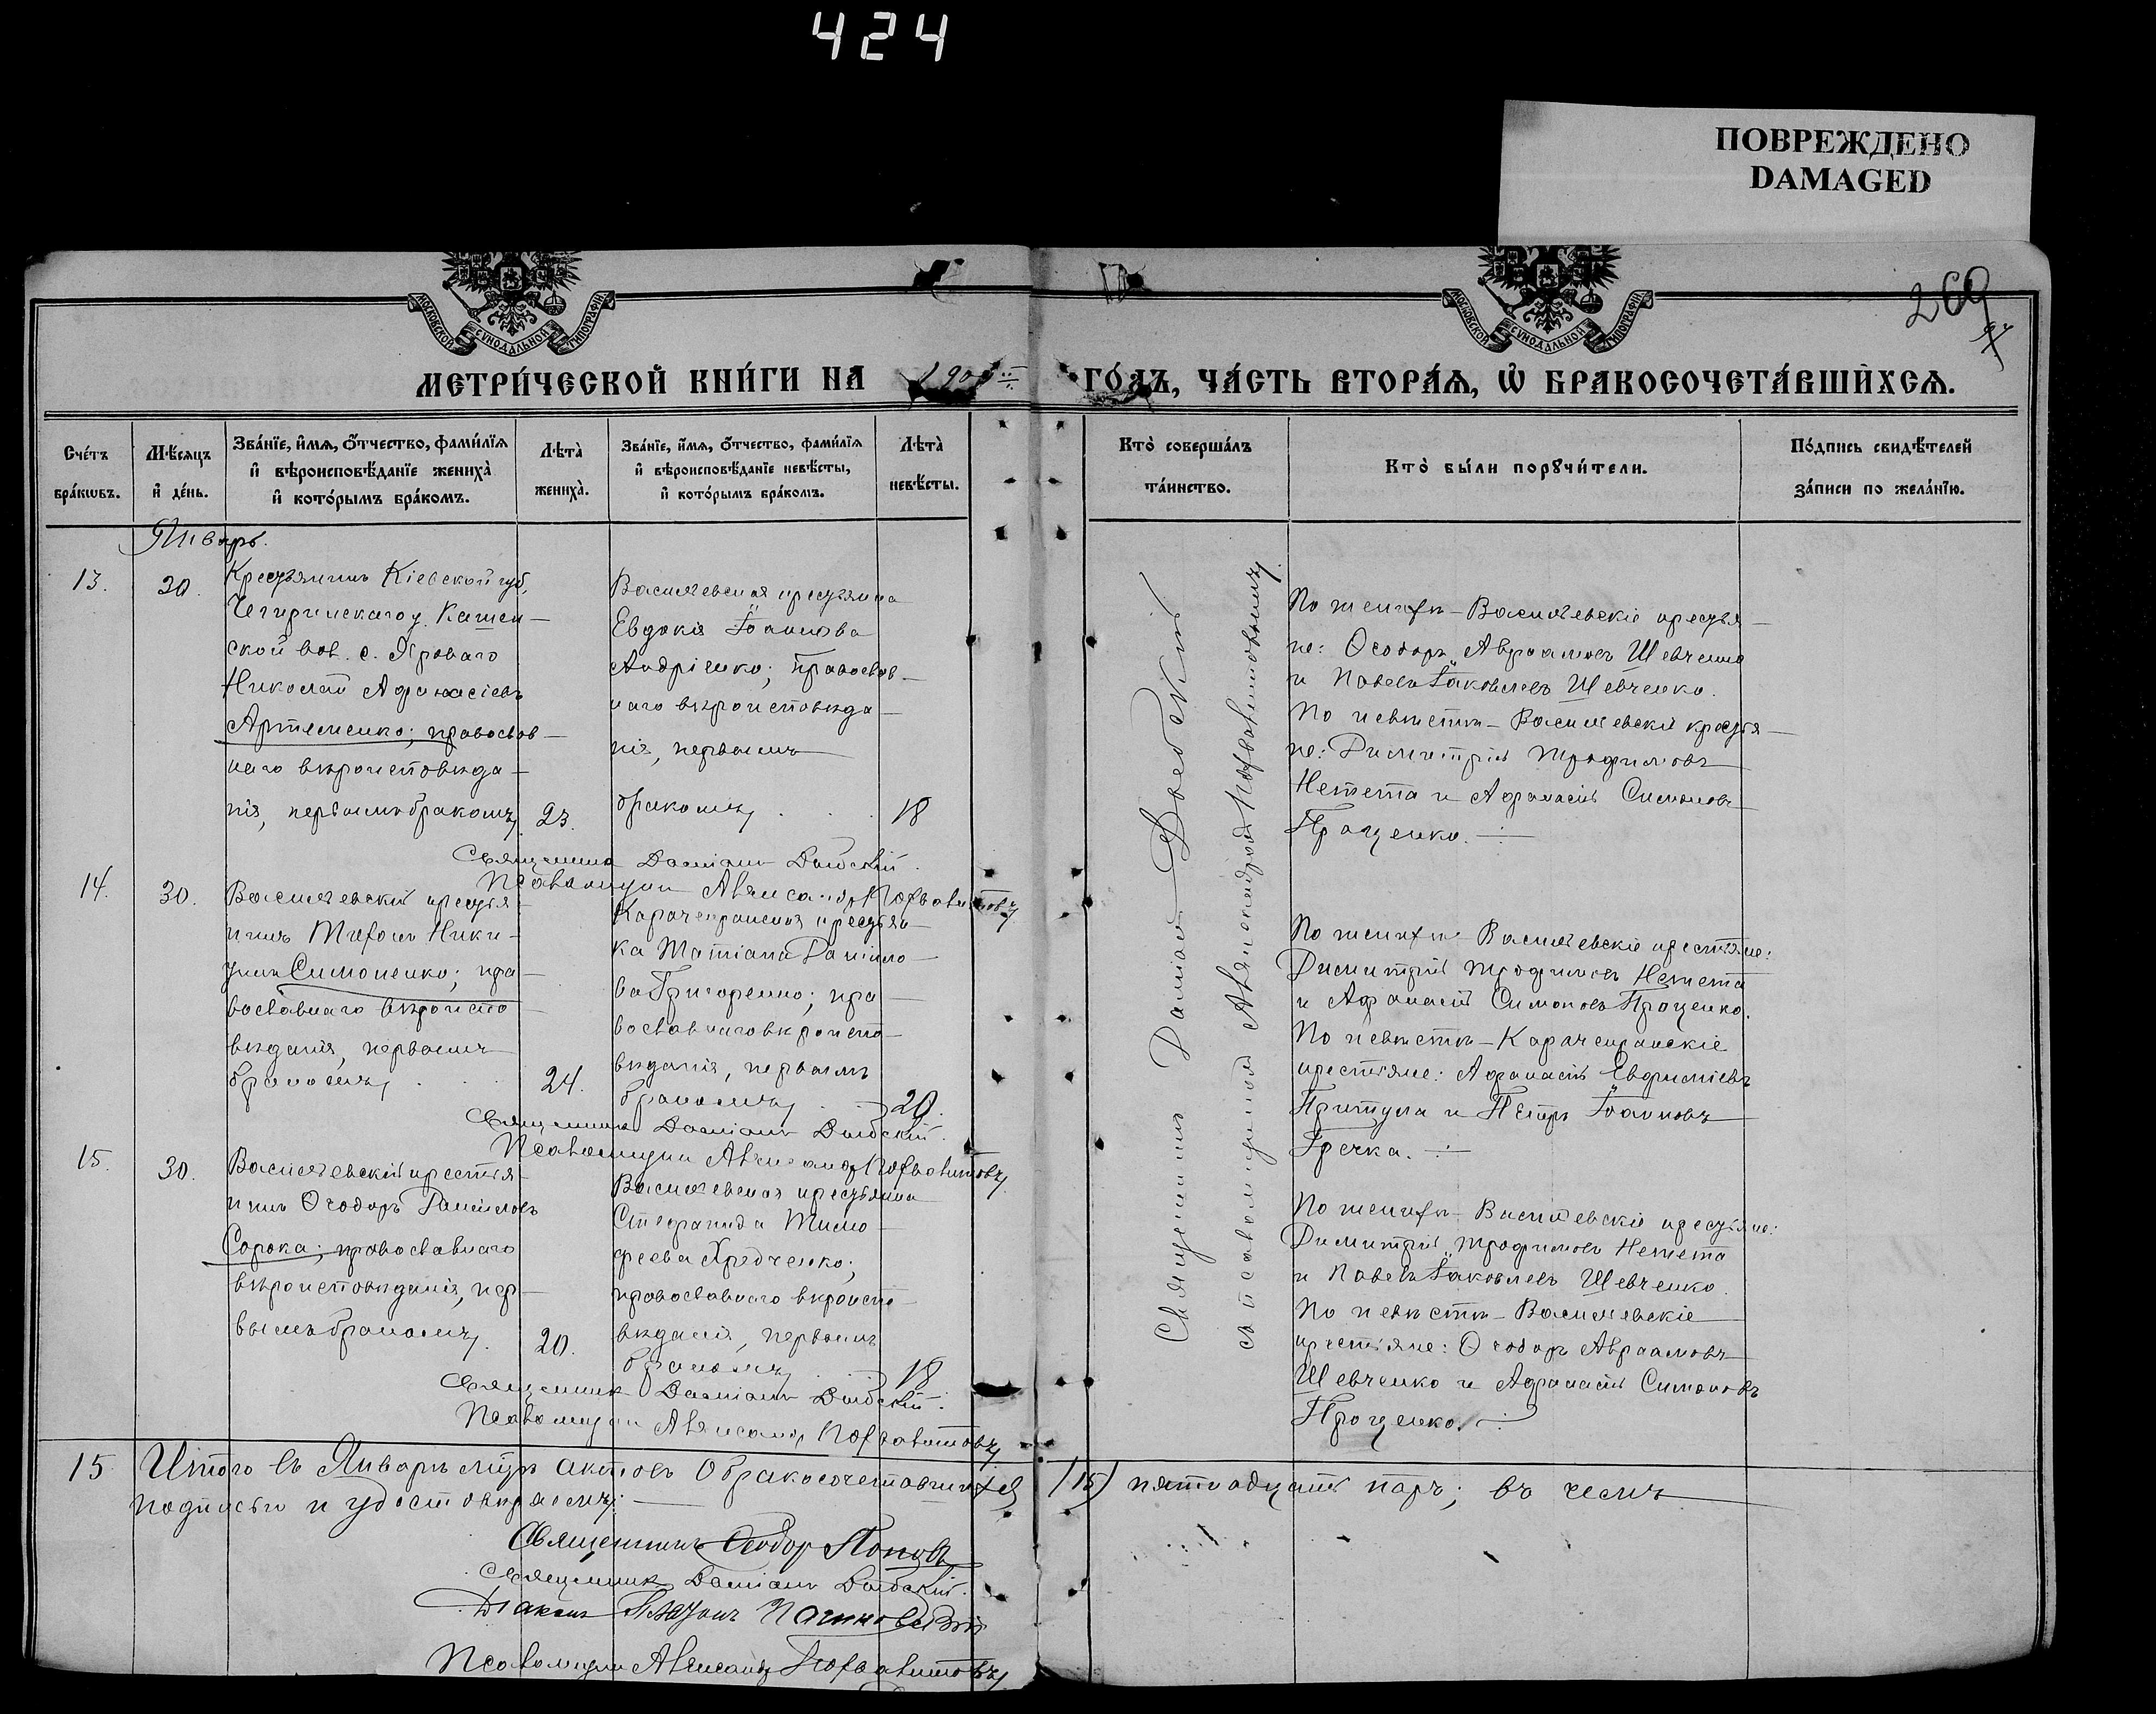 424
ПОВРЕЖДЕНО
DAMAGED
269
МОСКОВСКОЙ СѴНОДАЛЬНОЙ ТИПОГРАФІИ
МОСКОВСКОЙ СѴНОДАЛЬНОЙ ТИПОГРАФІИ
МЕТРИ́ЧЕСКОЙ КНИ́ГИ НА
ГО́ДЪ, ЧА́СТЬ ВТОРА́Я, Ѡ БРАКОСОЧЕТА́ВШИХСЯ.
Сче́тъ бра́кѡвъ.
Мѣ́сяцъ и де́нь.
Зва́нїе, и́мя, о́тчество, фами́лїя и вѣроисповѣ́данїе жениха̀ и кото́рымъ бра́комъ.
Лѣта̀ жениха̀.
Зва́нїе, и́мя, о́тчество, фами́лїя и вѣроисповѣ́данїе невѣ́сты, и кото́рымъ бра́комъ.
Лѣта̀ невѣ́сты.
Кто̀ соверша́лъ та́инство.
Кто̀ бы́ли порꙋчи́тели.
По́дпись свидѣ́телей за́писи по жела́нїю.
Январь.
13.
30.
Крестьянинъ Кіевской губ.
Чигиринскаго у. Камен-
ской вол. с. Яроваго
Николай Афанасіевъ
Артеменко; православ-
наго вѣроисповѣда-
нія, первымъ бракомъ,
23.
Василевская крестьянка
Евдокія Іоаннова
Андріенко; православ-
наго вѣроисповѣда-
нія, первымъ
бракомъ,
18
Священникъ Даміанъ
Псаломщикъ Александръ
По женихѣ - Василевскіе крестья-
не: Ѳеодоръ Авраамовъ Шевченко
и Павелъ Іаковлевъ Шевченко.
По невѣстѣ - Василевскіе крестья-
не: Димитрій Трофимовъ
Немета и Афанасій Симоновъ
Проценко.
14.
30.
Василевскій крестья-
нинъ Тихонъ Ники-
тинъ Симоненко; пра-
вославнаго вѣроиспо-
вѣданія, первымъ
бракомъ,
24.
Карачекракская крестьян-
ка Татіана Даніило-
ва Григоренко; пра-
вославнаго вѣроиспо-
вѣданія, первымъ
бракомъ,
20.
Священникъ Даміанъ
Псаломщикъ Александръ
По женихѣ - Василевскіе крестьяне:
Димитрій Трофимовъ Немета
и Афанасій Симоновъ Проценко.
По невѣстѣ - Карачекракскіе
крестьяне: Афанасій Евфиміевъ
Притула и Петръ Іоанновъ
Гречка.
15.
30.
Василевскій крестья-
нинъ Ѳеодоръ Даніиловъ
Сорока; православнаго
вѣроисповѣданія, пер-
вымъ бракомъ,
20.
Василевская крестьянка
Стефанида Тимо-
феева Хредченко;
православнаго вѣроиспо-
вѣданія, первымъ
бракомъ,
18
Священникъ Даміанъ
Псаломщикъ Александръ
По женихѣ - Василевскіе крестьяне:
Димитрій Трофимовъ Немета
и Павелъ Іаковлевъ Шевченко.
По невѣстѣ - Василевскіе
крестьяне: Ѳеодоръ Авраамовъ
Шевченко и Афанасій Симоновъ
Проценко.
Священникъ Даміанъ
съ псаломщикомъ Александромъ
15 Итого въ Январѣ мцѣ актовъ о бракосочетавшихся (15) пятнадцать паръ; въ чемъ
подписью и удостовѣряемъ:
Священникъ Ѳеодоръ Поповъ
Священникъ Даміанъ
Діаконъ
Псаломщикъ Александръ